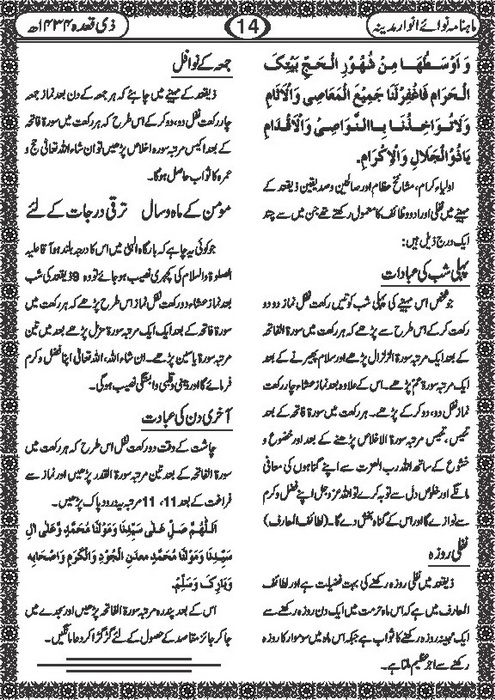 ماہنامہ نوائے انوار مدینہ
14
ذی قعدہ ۱۴۳۴ھ
وَ اَوْسَطُهَا مِنْ شُهُوْرِ الْحَجِّ بَيْتِكَ
الْحَرَامِ فَاغْفِرْلَنَا جَمِيْعَ الْمَعَاصِىْ وَالْاٰثَامِ
وَلَاتُوَاخِذْنَا بِالنَّوَاصِىْ وَالْاَقْدَامِ
يَاذُوالْجَلَالِ وَالْاِكْرَامِ.
اولیاء کرام، مشائخ عظام اور صالحین وصدیقین ذیقعد کے
مہینے میں نفلی اور ادو وظائف کا معمول رکھتے تھے جن میں سے چند
ایک درج ذیل ہیں:
پہلی شب کی عبادات
جو شخص اس مہینے کی پہلی شب کو تیس رکعت نفل نماز دو دو
رکعت کر کے اس طرح سے پڑھے کہ ہر رکعت میں سورۃ الفاتحہ
کے بعد ایک مرتبہ سورۃ الزلزال پڑھے اور سلام پھیرنے کے بعد
ایک مرتبہ سورۃ عمّ پڑھے۔ اس کے علاوہ بعد نماز عشاء چار رکعت
نماز نفل دو، دو کر کے پڑھے۔ ہر رکعت میں سورۃ فاتحہ کے بعد
تئیس، تئیس مرتبہ سورۃ الاخلاص پڑھنے کے بعد اور خضوع و
خشوع کے ساتھ اللہ رب العزت سے اپنے گناہوں کی معافی
مانگے اور خلوص دل سے توبہ کرے تو اللہ عزوجل اپنے فضل و کرم
سے نوازے گا اور اس کے گناہ بخش دے گا۔ (لطائف المعارف)
نفلی روزہ
ذیقعد میں نفلی روزہ رکھنے کی بہت فضیلت ہے اور لطائف
المعارف میں ہے کہ اس ماہ حرمت میں ایک دن روزہ رکھنے سے
ایک مہینہ روزہ رکھنے کا ثواب ہے جبکہ اس ماہ میں سوموار کا روزہ
رکھنے سے اجر عظیم ملتا ہے۔
جمعہ کے نوافل
ذیقعد کے مہینے میں چاہئے کہ ہر جمعہ کے دن بعد نماز جمعہ
چار رکعت نفل دو، دو کر کے اس طرح کہ ہر رکعت میں سورۃ فاتحہ
کے بعد اکیس مرتبہ سورۃ اخلاص پڑھیں تو ان شاء اللہ تعالیٰ حج و
عمرہ کا ثواب حاصل ہوگا۔
مومن کے ماہ و سال ترقی درجات کے لئے
جو کوئی یہ چاہے کہ بارگاہ الٰہی میں اس کا درجہ بلند ہو آقا علیہ
الصلوۃ والسلام کی کچہری نصیب ہو جائے تو وہ 9 ذیقعد کی شب
بعد نماز عشاء دو رکعت نفل نماز اس طرح پڑھے کہ ہر رکعت میں
سورۃ فاتحہ کے بعد ایک ایک مرتبہ سورۃ مزمل پڑھے بعد میں تین
مرتبہ سورۃ یاسین پڑھے۔ ان شاء اللہ، اللہ تعالیٰ اپنا فضل و کرم
فرمائے گا اور دینی و قلبی وابستگی نصیب ہوگی۔
آخری دن کی عبادت
چاشت کے وقت دو رکعت نفل اس طرح کہ ہر رکعت میں
سورۃ الفاتحہ کے بعد تین مرتبہ سورۃ القدر پڑھیں اور نماز سے
فراغت کے بعد 11، 11 مرتبہ یہ درود پاک پڑھیں۔
اَللّٰهُمَّ صَلِّ عَلٰى سَيِّدِنَا وَمَوْلٰنَا مُحَمَّدٍ وَّعَلٰى اٰلِ
سَيِّدِنَا وَمَوْلٰنَا مُحَمَّدٍ مَعْدَنِ الْجُوْدِ وَالْكَرَمِ وَاَصْحَابِهِ
وَبَارِكْ وَسَلِّمْ.
اس کے بعد پندرہ مرتبہ سورۃ الفاتحہ پڑھیں اور سجدے میں
جا کر جائز مقاصد کے حصول کے لئے گڑ گڑا کر دعا مانگیں۔